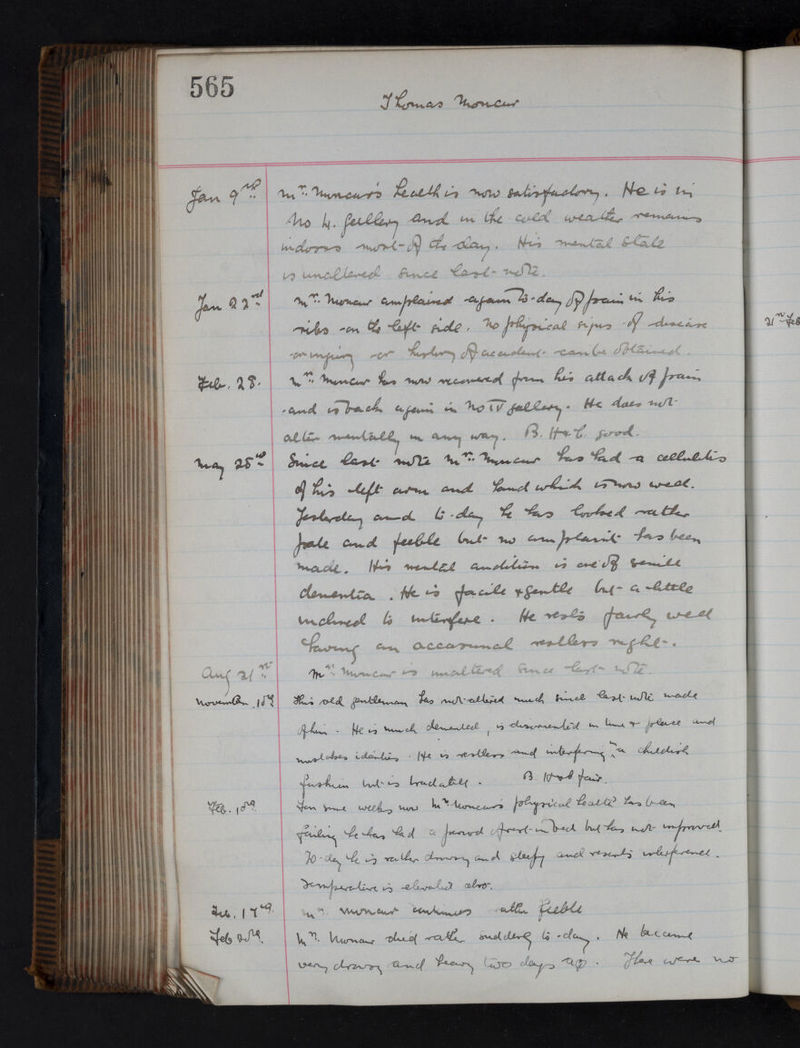 565
Thomas Moncur
Jan 9th Mr. Moncur's health is now satisfactory. He is in
No 4. Gallery and in the cold weather remains
indoors most of the day. His mental state
is unaltered since last note.
Jan 22nd Mr. Moncur complained again to-day of pain in his
ribs on the left side. No physical signs of disease
or injury or history of accident can be obtained.
Feb. 28. Mr. Moncur has now recovered from his attack of pain
and is back again in No IV gallery. He does not
alter mentally in any way. B. H. good.
May 25th Since last note Mr. Moncur has had a cellulitis
of his left arm and hand which is now well.
Yesterday and to-day he has looked rather
pale and feeble but no complaint has been
made. His mental condition is one of senile
dementia. He is facile & gentle but a little
inclined to interfere. He rests fairly well
having an occasional restless night.
Aug 21st Mr. Moncur is unaltered since last note.
November 18th This old gentleman has not altered much since last note made
of him. He is much demented, is disorientated in time & place and
mistakes identities. He is restless and interfering in a childish
fashion but is tractable. B. H. fair.
Feb. 10th For some weeks now Mr Moncur's physical health has been
failing he has had a period of rest in bed but has not improved.
To-day he is rather drowsy and sleepy and resents interference.
Temperature is elevated also.
Feb. 17th Mr. Moncur continues rather feeble
Feb Mr. Moncur died rather suddenly to-day. He became
very drowsy and heavy two days ago. There were no
21st Feb